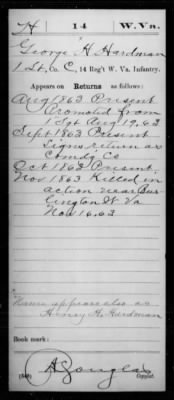 H | 14 | W. Va.
George H Hardman
1 Lt, Co. C, 14 Reg't W. Va. Infantry.
Appears on Returns as follows:
Aug 1863 Present
Promoted from
1 Sgt Aug 19, 63
Sept 1863 Present
Signs return as
Comdg Co
Oct 1863 Present.
Nov 1863 Killed in
action near Bur
lington W Va
Nov 16, 63
Name appears also as
Henry H. Hardman
Book mark:
A Douglas
Copyist.